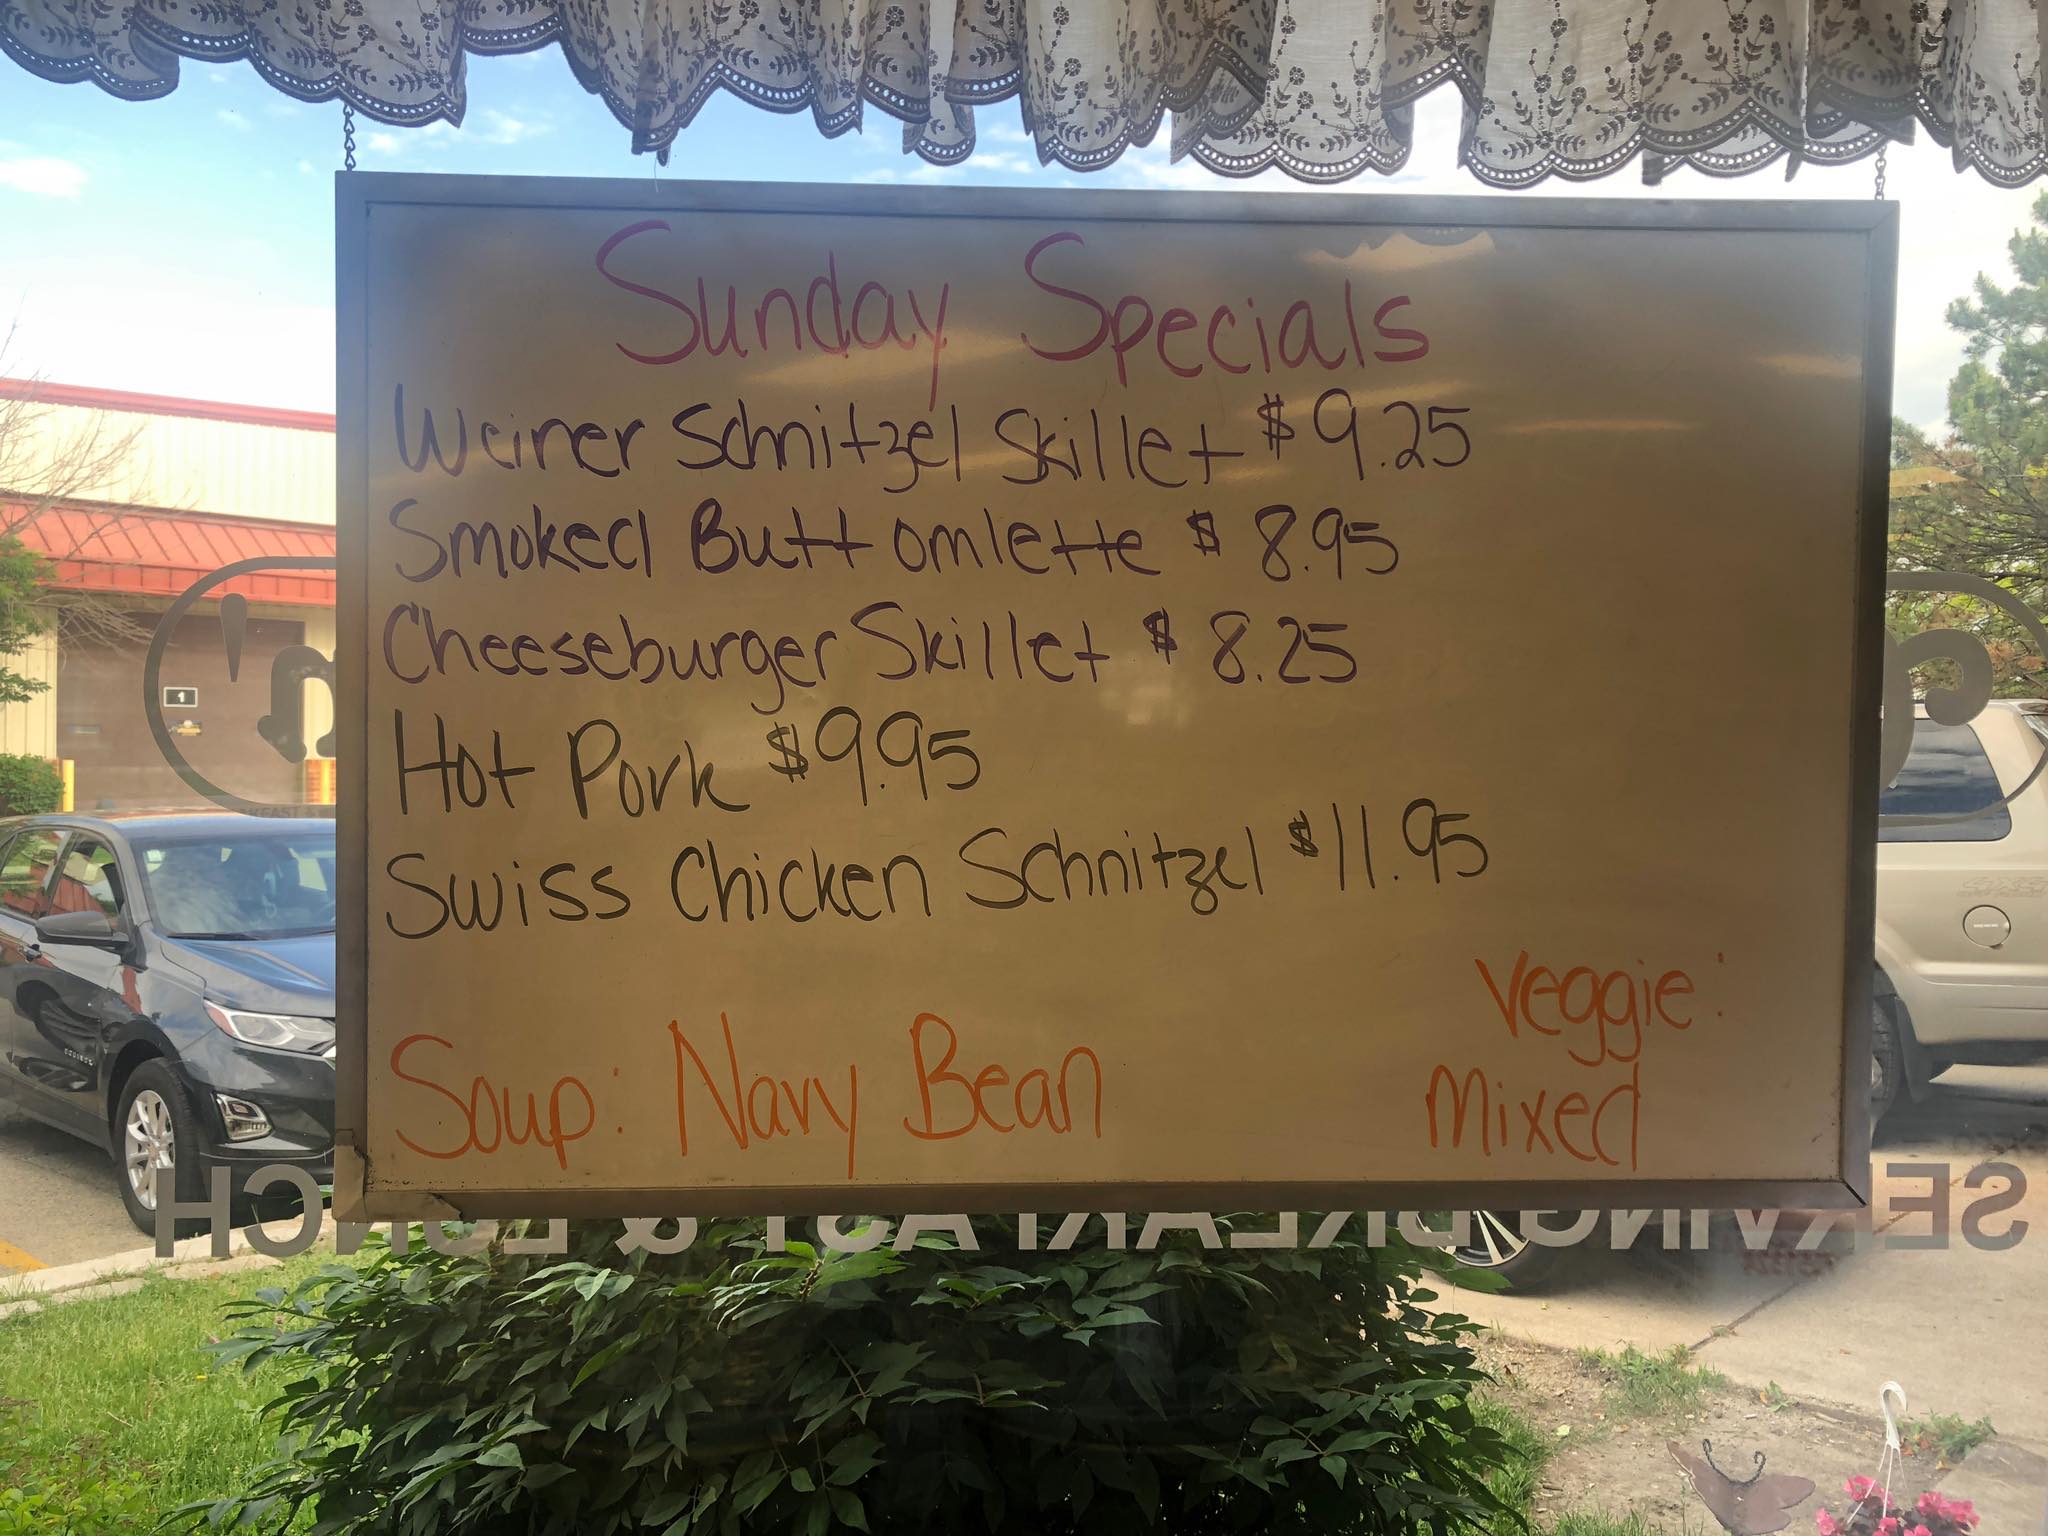 Sunday Specials
Weiner Schnitzel Skillet $9.25
Smoked Butt omlette $ 8.95
Cheeseburger Skillet $ 8.25
Hot Pork $9.95
Swiss Chicken Schnitzel $11.95
Veggie:
Mixed
Soup: Navy Bean
SERVING BREAKFAST & LUNCH
1